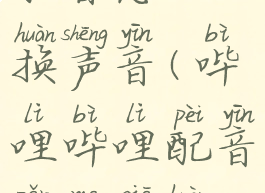 huàn shēng yīn bì
换声音(哔
lì bì lì pèi yīn
哩哔哩配音